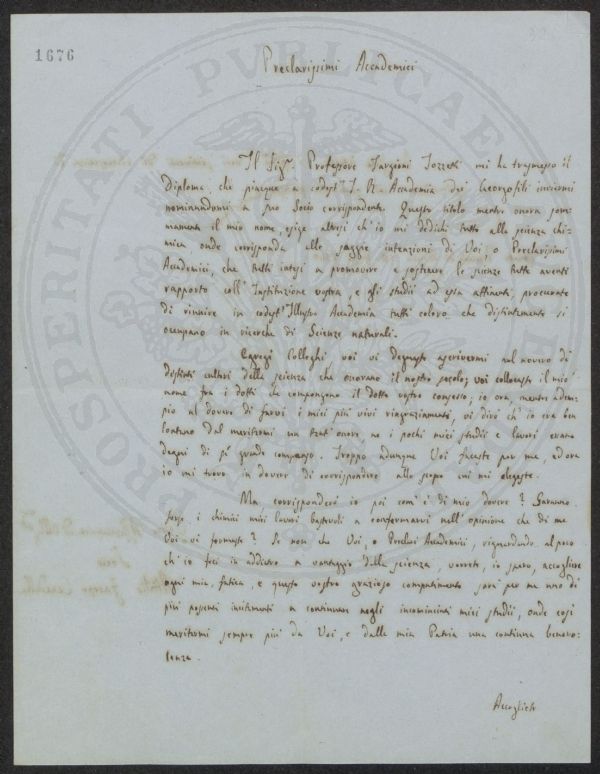 1676
Preclarissimi Accademici
Il Sigr. Professore Targioni Tozzetti mi ha trasmesso il
Diploma, che piacque a codest' I. R. Accademia dei Georgofili inviarmi
nominandomi a suo Socio corrispondente. Questo titolo mentre onora som-
mamente il mio nome, esige altresì ch'io mi dedichi tutto alla scienza chi-
mica onde corrisponda alle saggie intenzioni di Voi, o Preclarissimi
Accademici, che tutti intesi a promuovere e sostenere le scienze tutte aventi
rapporto coll' Instituzione vostra, e gli studii ad essa attinenti, procurate
di riunire in codest' Illustre Accademia tutti coloro che distintamente si
occupano in ricerche di Scienze naturali.
Egregi Colleghi voi vi degnaste ascrivermi nel novero di
distinti cultori della scienza che onorano il nostro secolo; voi collocaste il mio
nome fra i dotti che compongono il dotto vostro consesso; io ora, mentre adem-
pio al dovere di farvi i miei più vivi ringraziamenti, vi dirò ch'io era ben
lontano dal meritarmi un tant' onore, ne i pochi miei studii e lavori erano
degni di sì grande compenso. Troppo adunque Voi faceste per me, ad ora
io mi trovo in dovere di corrispondere allo scopo cui mi elegeste.
Ma, corrisponderò io poi com' è di mio dovere? Saranno
forse i chimici miei lavori bastevoli a confermarvi nell' opinione che di me
Voi vi formaste? Se non che Voi, o Preclari Accademici, riguardando al poco
ch'io feci in addietro a vantaggio della scienza, vorrete, io spero, accogliere
ogni mia fatica, e questo vostro grazioso compatimento sarà per me uno di
più possenti incitamenti a continuare negli incominciati miei studii, onde così
meritarmi sempre più da Voi, e dalla mia Patria una continua benevo-
lenza.
Accogliete
PROSPERITATI PVBLICAE